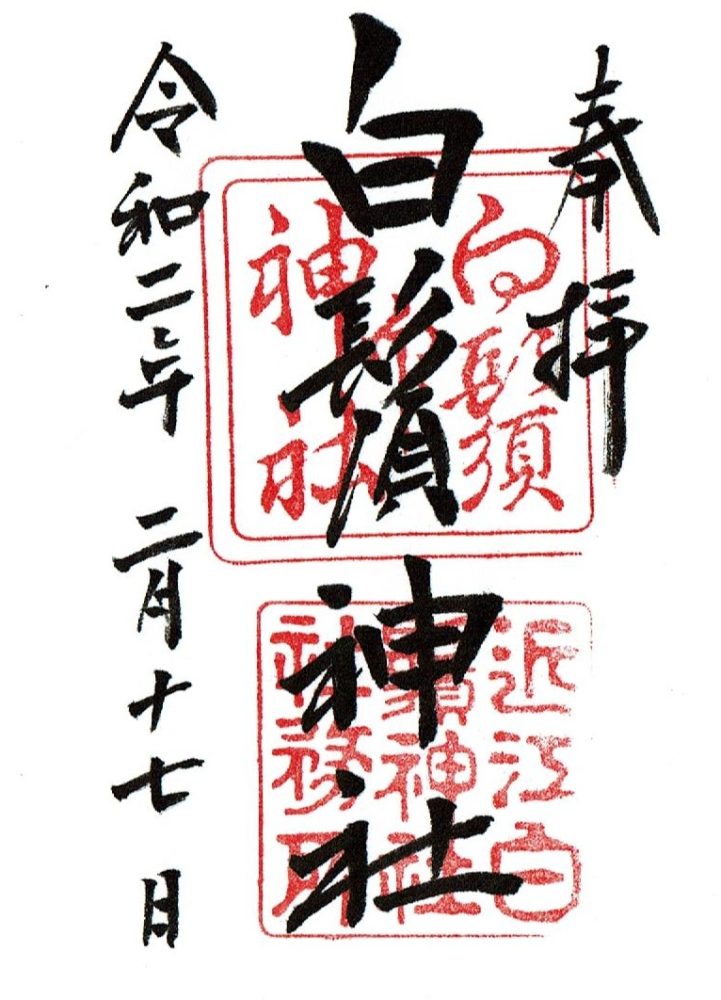 奉拝
白鬚神社
令和二年 二月十七日
白鬚
神社
近江白
鬚神社
社務所